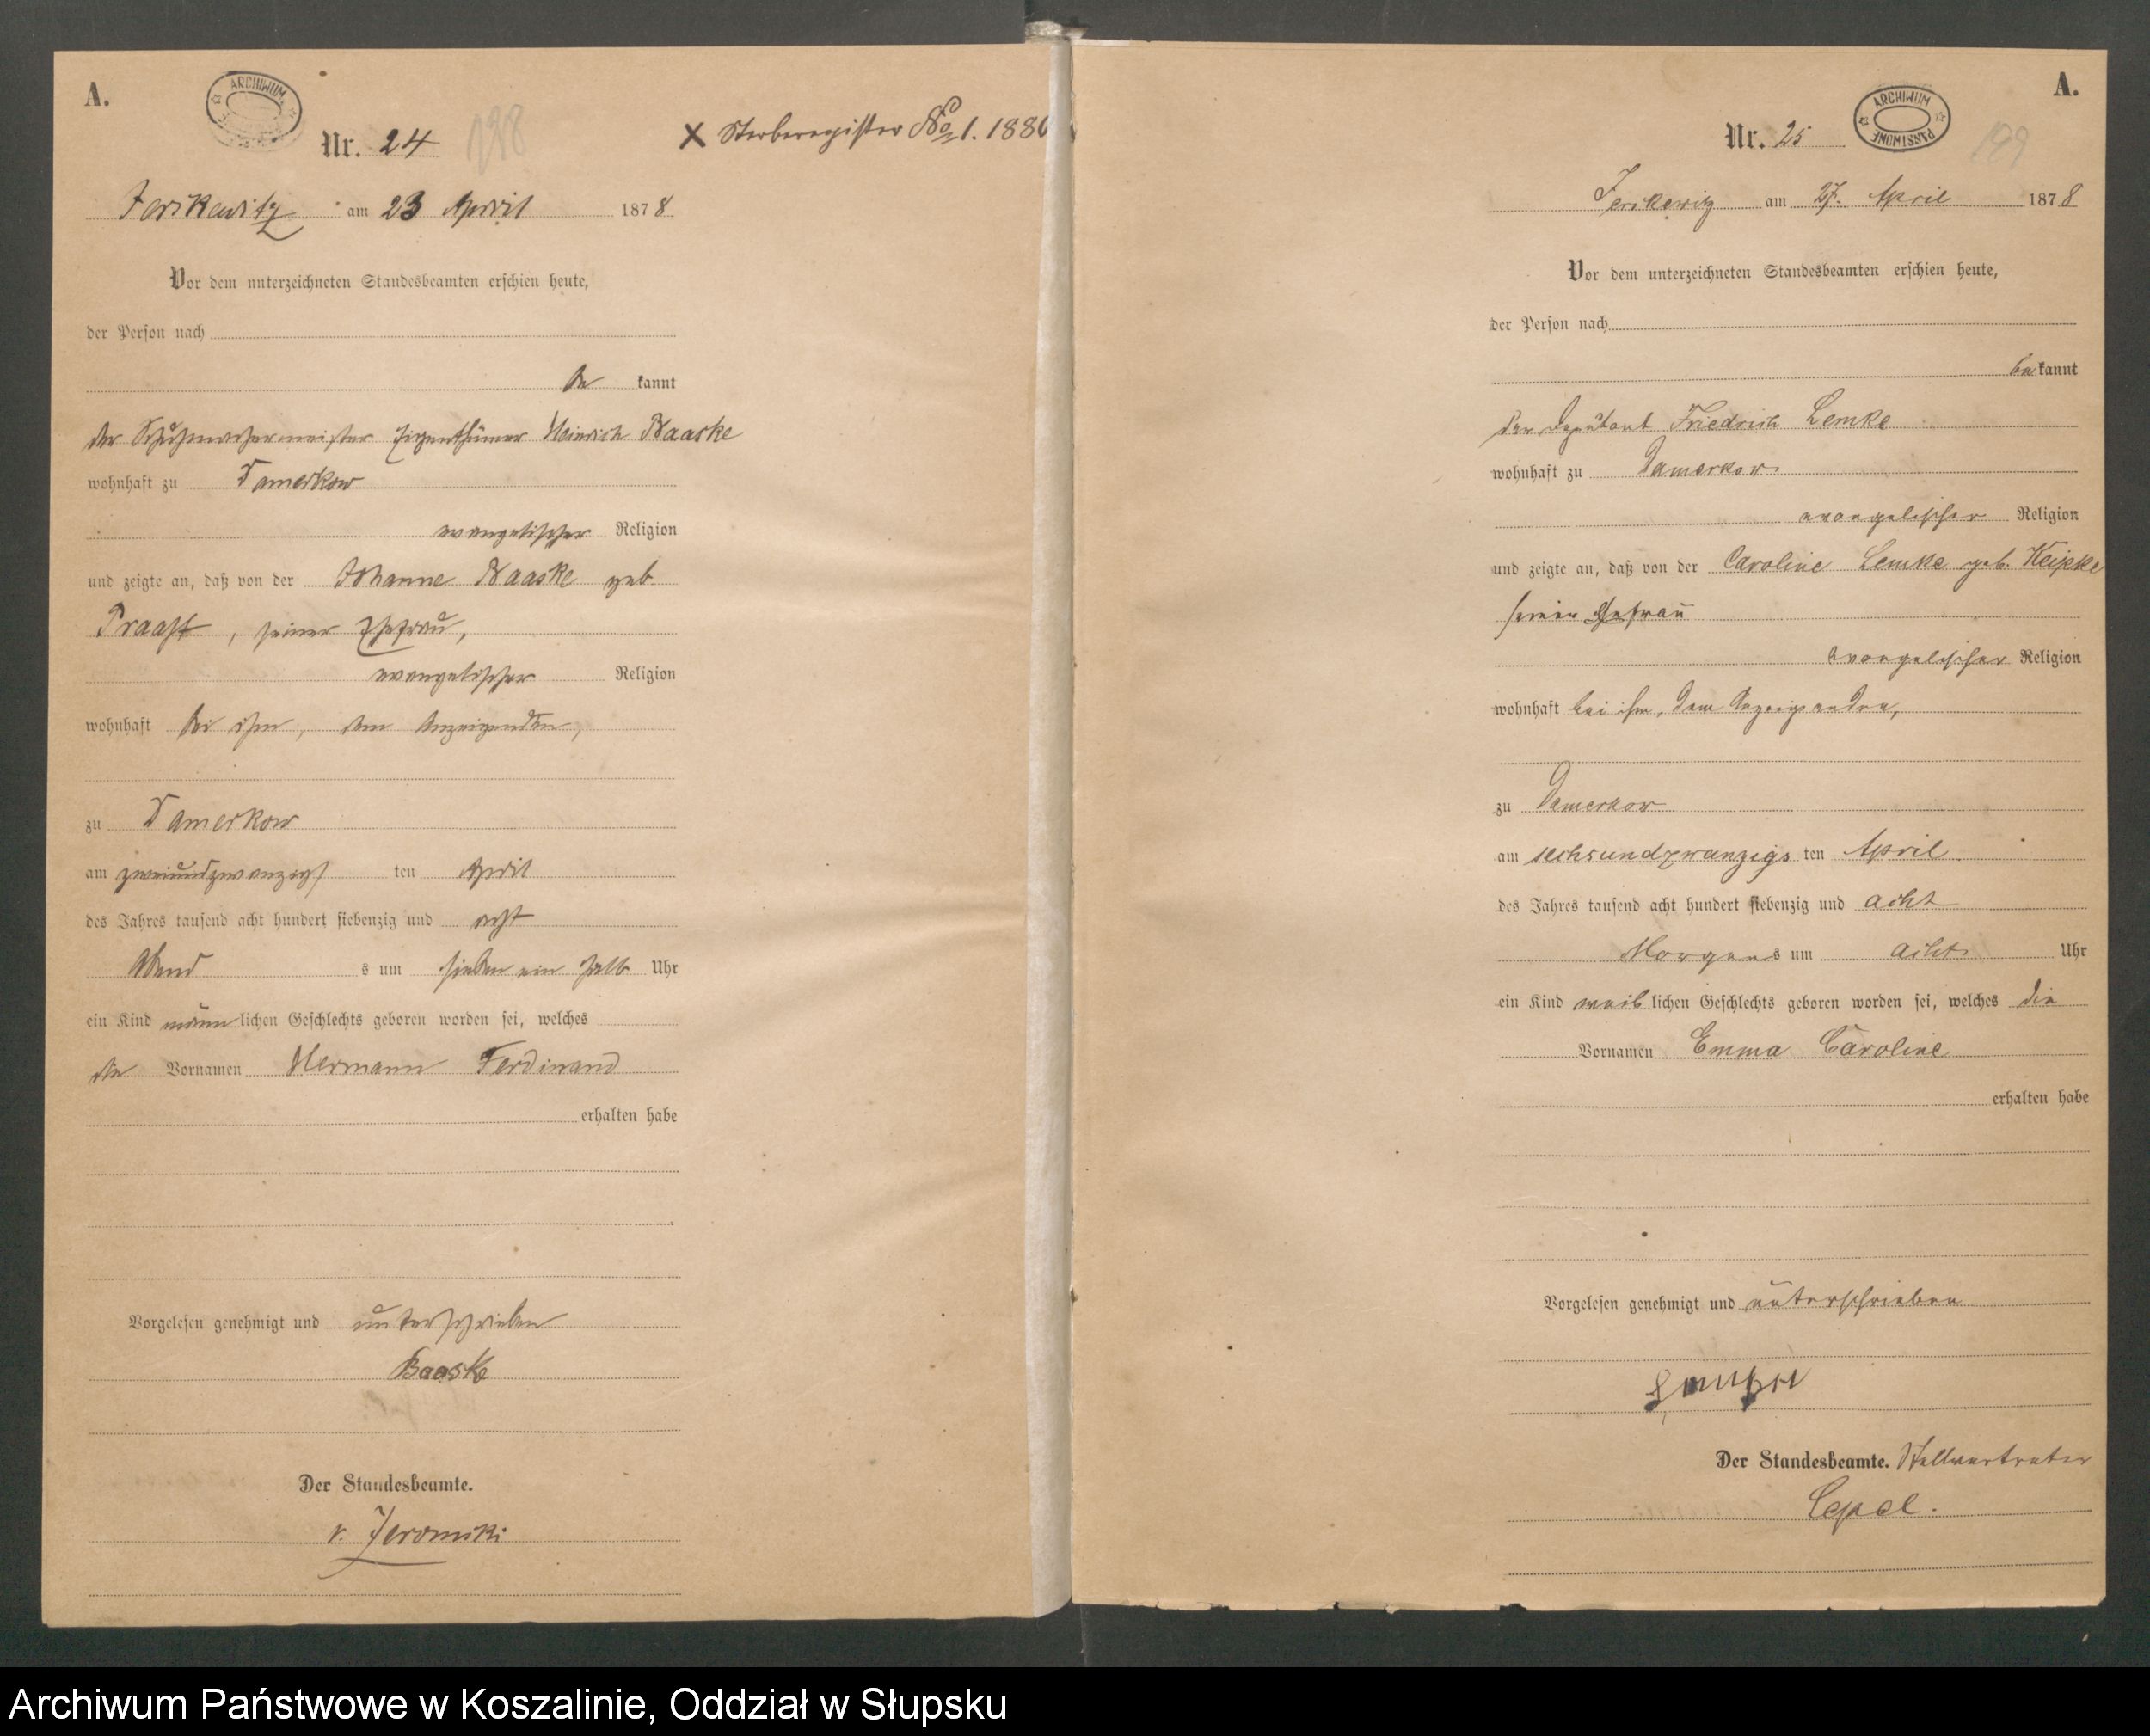 A.
ARCHIWUM
Nr. 24
198
X Sterberegister No 1. 1880
Jerskewitz am 23 April 1878
Vor dem unterzeichneten Standesbeamten erschien heute,
der Person nach
be kannt
der Schuhmachermeister Eigenthümer Heinrich Baaske
wohnhaft zu Damerkow
evangelischer Religion
und zeigte an, daß von der Johanne Baaske geb
Praast, seiner Ehefrau,
evangelischer Religion
wohnhaft bei ihm, dem Anzeigenden,
zu Damerkow
am zweiundzwanzigs ten April
des Jahres tausend acht hundert siebenzig und acht
Abend s um sieben ein halb Uhr
ein Kind männ lichen Geschlechts geboren worden sei, welches
die Vornamen Hermann Ferdinand
erhalten habe
Vorgelesen genehmigt und unterschrieben
Baaske
Der Standesbeamte.
v.
A.
ARCHIWUM PAŃSTWOWE
Nr. 25
199
Jerskewitz am 27. April 1878
Vor dem unterzeichneten Standesbeamten erschien heute,
der Person nach
be kannt
der Deputant Friedrich Lemke
wohnhaft zu Damerkow
evangelischer Religion
und zeigte an, daß von der Caroline Lemke geb. Keipke
seiner Ehefrau
evangelischer Religion
wohnhaft bei ihm, dem Anzeigenden,
zu Damerkow
am sechsundzwanzigs ten April
des Jahres tausend acht hundert siebenzig und acht
Morgens um acht Uhr
ein Kind weib lichen Geschlechts geboren worden sei, welches die
Vornamen Emma Caroline
erhalten habe
Vorgelesen genehmigt und unterschrieben
Der Standesbeamte. Stellvertreter
Archiwum Państwowe w Koszalinie, Oddział w Słupsku